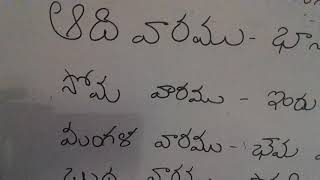 ఆది వారము - భా
సోమ వారము - ఇందు
మంగళ వారము - భౌమ